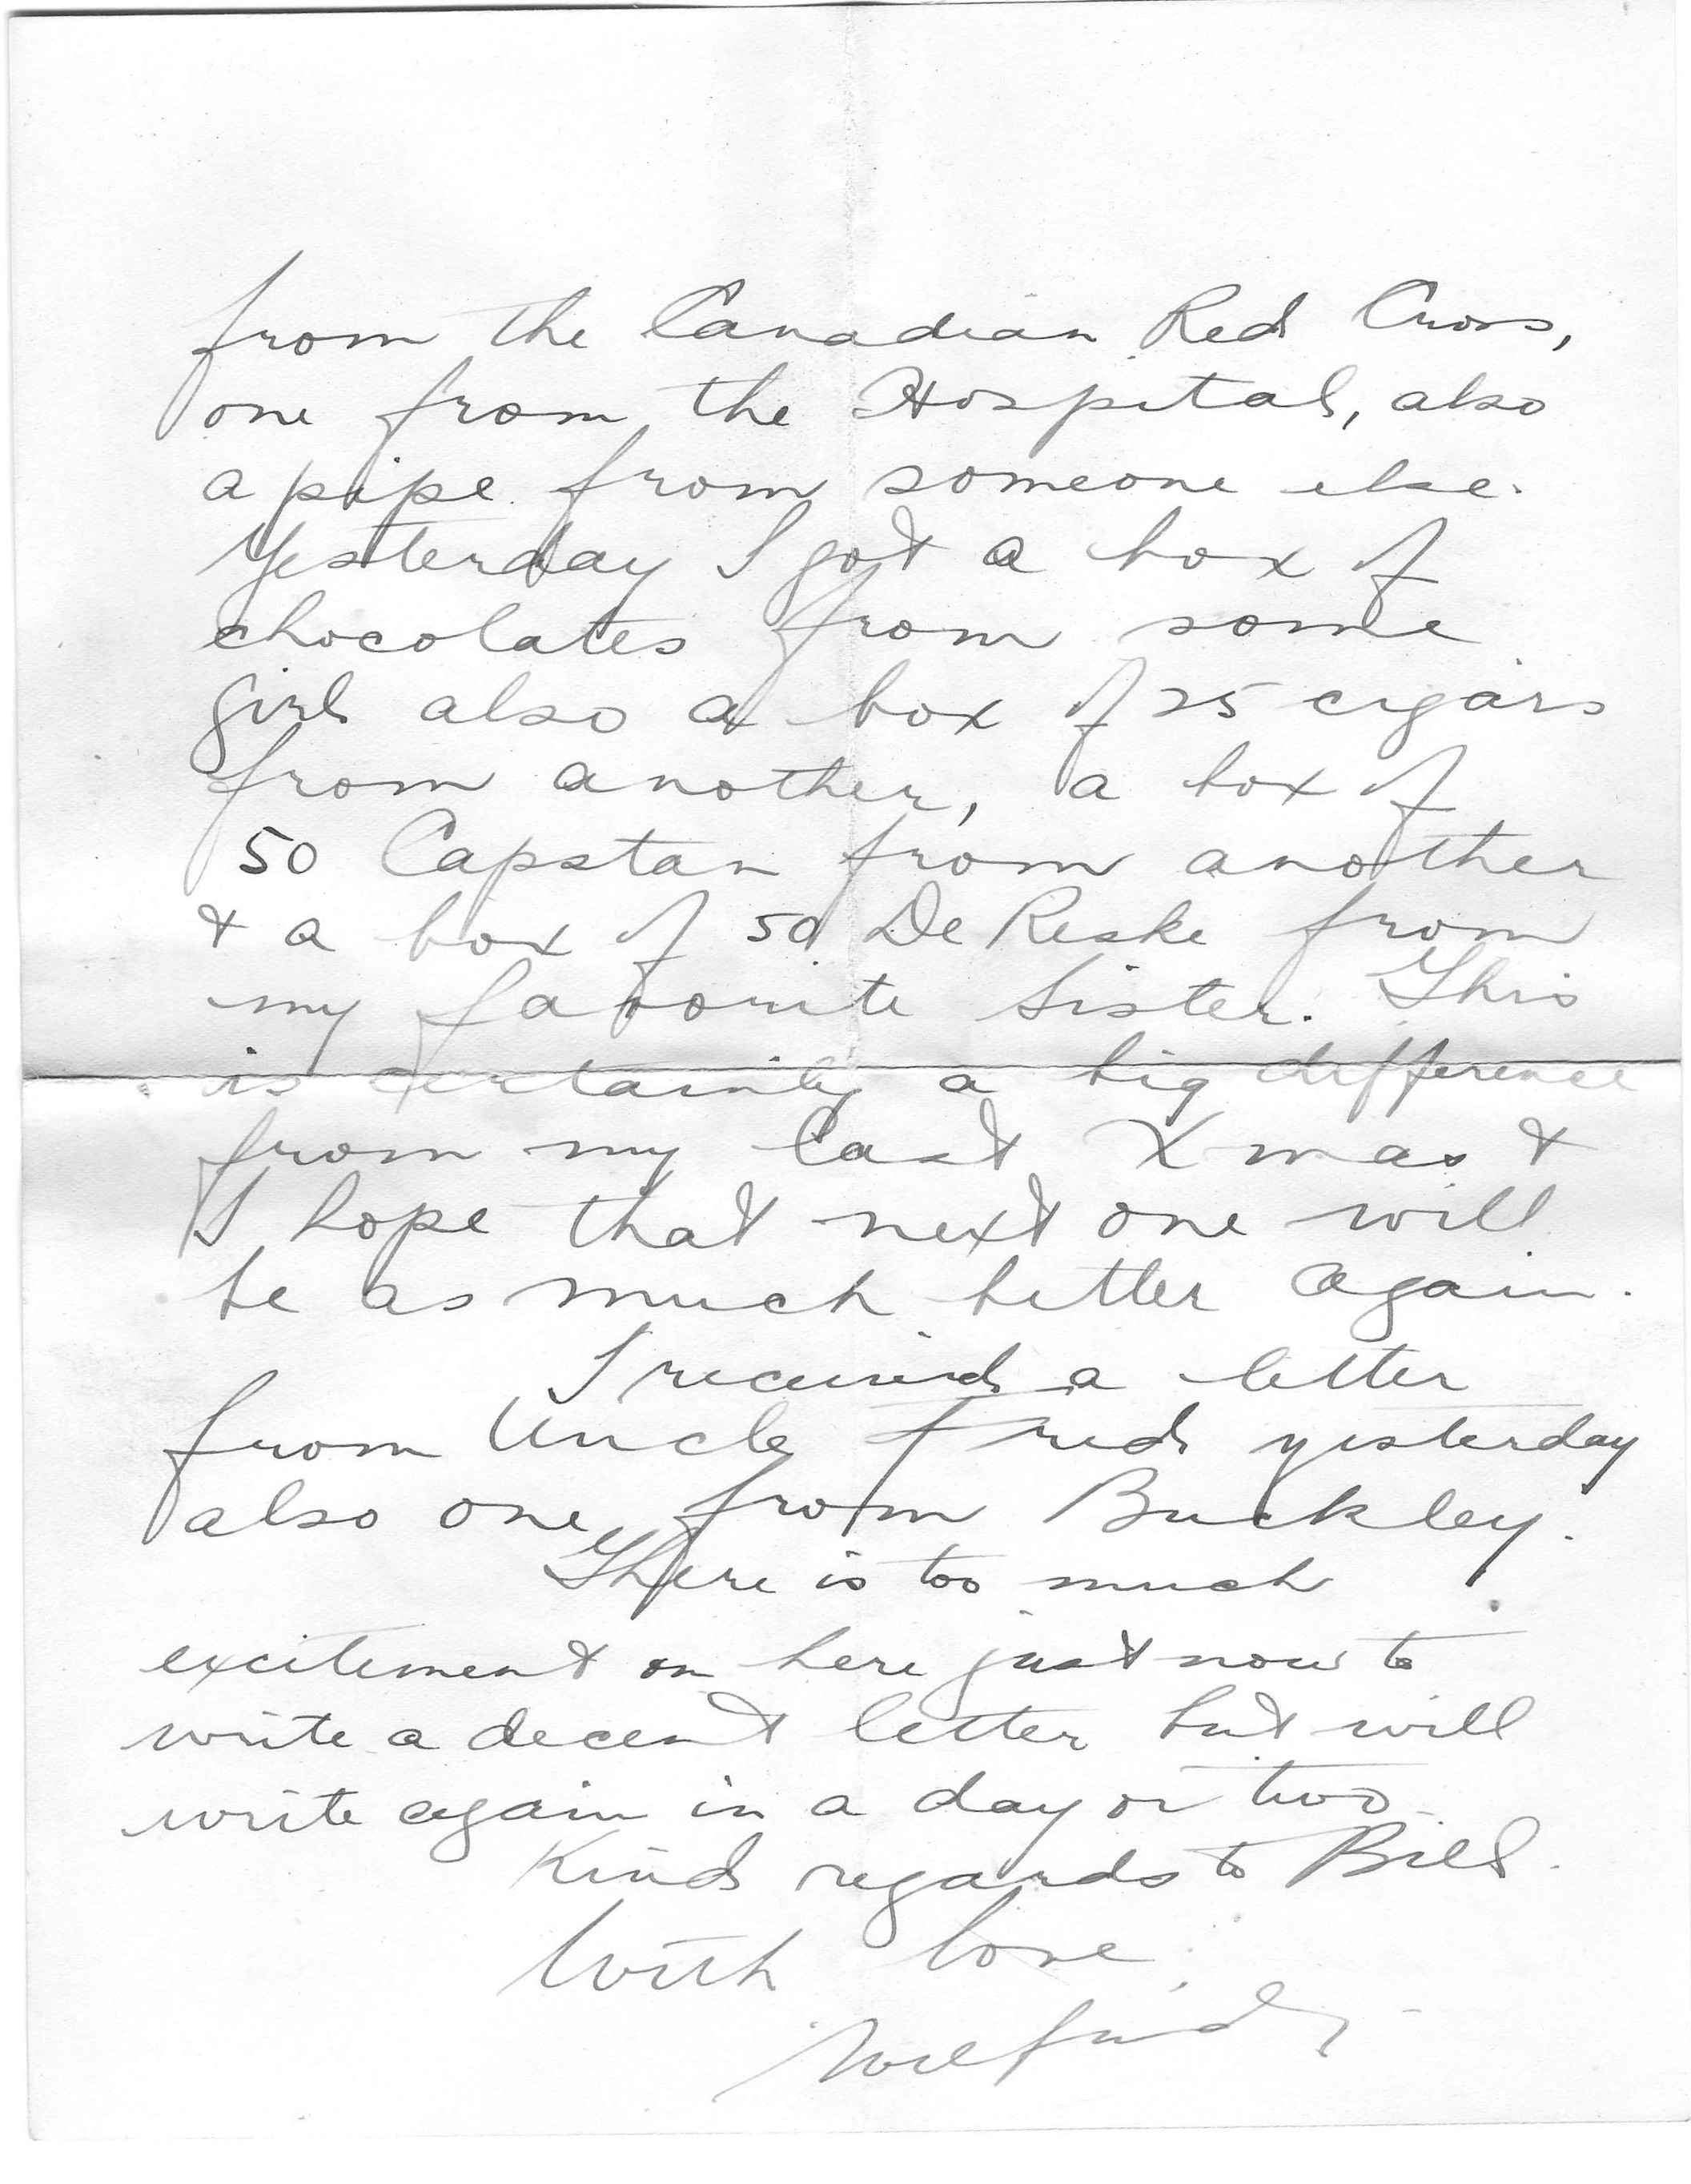 from the Canadian Red Cross,
one from the Hospital, also
a pipe from someone else.
Yesterday I got a box of
chocolates from some
girl also a box of 25 cigars
from another, a box of
50 Capstan from another
& a box of 50 De Reske from
my favorite Sister. This
is certainly a big difference
from my last Xmas &
I hope that next one will
be as much better again.
I received a letter
from Uncle Fred yesterday
also one from Buckley.
There is too much
excitement on here just now to
write a decent letter but will
write again in a day or two.
Kind regards to Bill.
With love.
Wilfrid